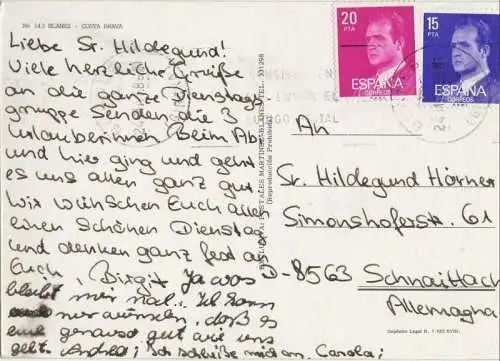 No 143 BLANES - COSTA BRAVA
Liebe Sr. Hildegund!
Viele herzliche Grüße
an die ganze Dienstags-
gruppe senden die 3
Urlauberinnen. Beim Abi
und hier ging und geht
es uns allen ganz gut.
Wir wünschen Euch allen
einen schönen Dienstag
und denken ganz fest an
Euch, Birgit Ja was
bleibt mir mal. Ich kann
nur wünschen, daß es
euch genauso gut wie uns
geht. Andrea; Ich schließe mich an. Carola;
20
PTA
ESPAÑA
CORREOS
15
PTA
ESPAÑA
CORREOS
An
Sr. Hildegund Hörner
Simonshoferstr. 61
D-8563 Schnaittach
Allemagna
POSTALES MARTINEZ-BLANES-TEL. 331298
(Reproducción Prohibida)